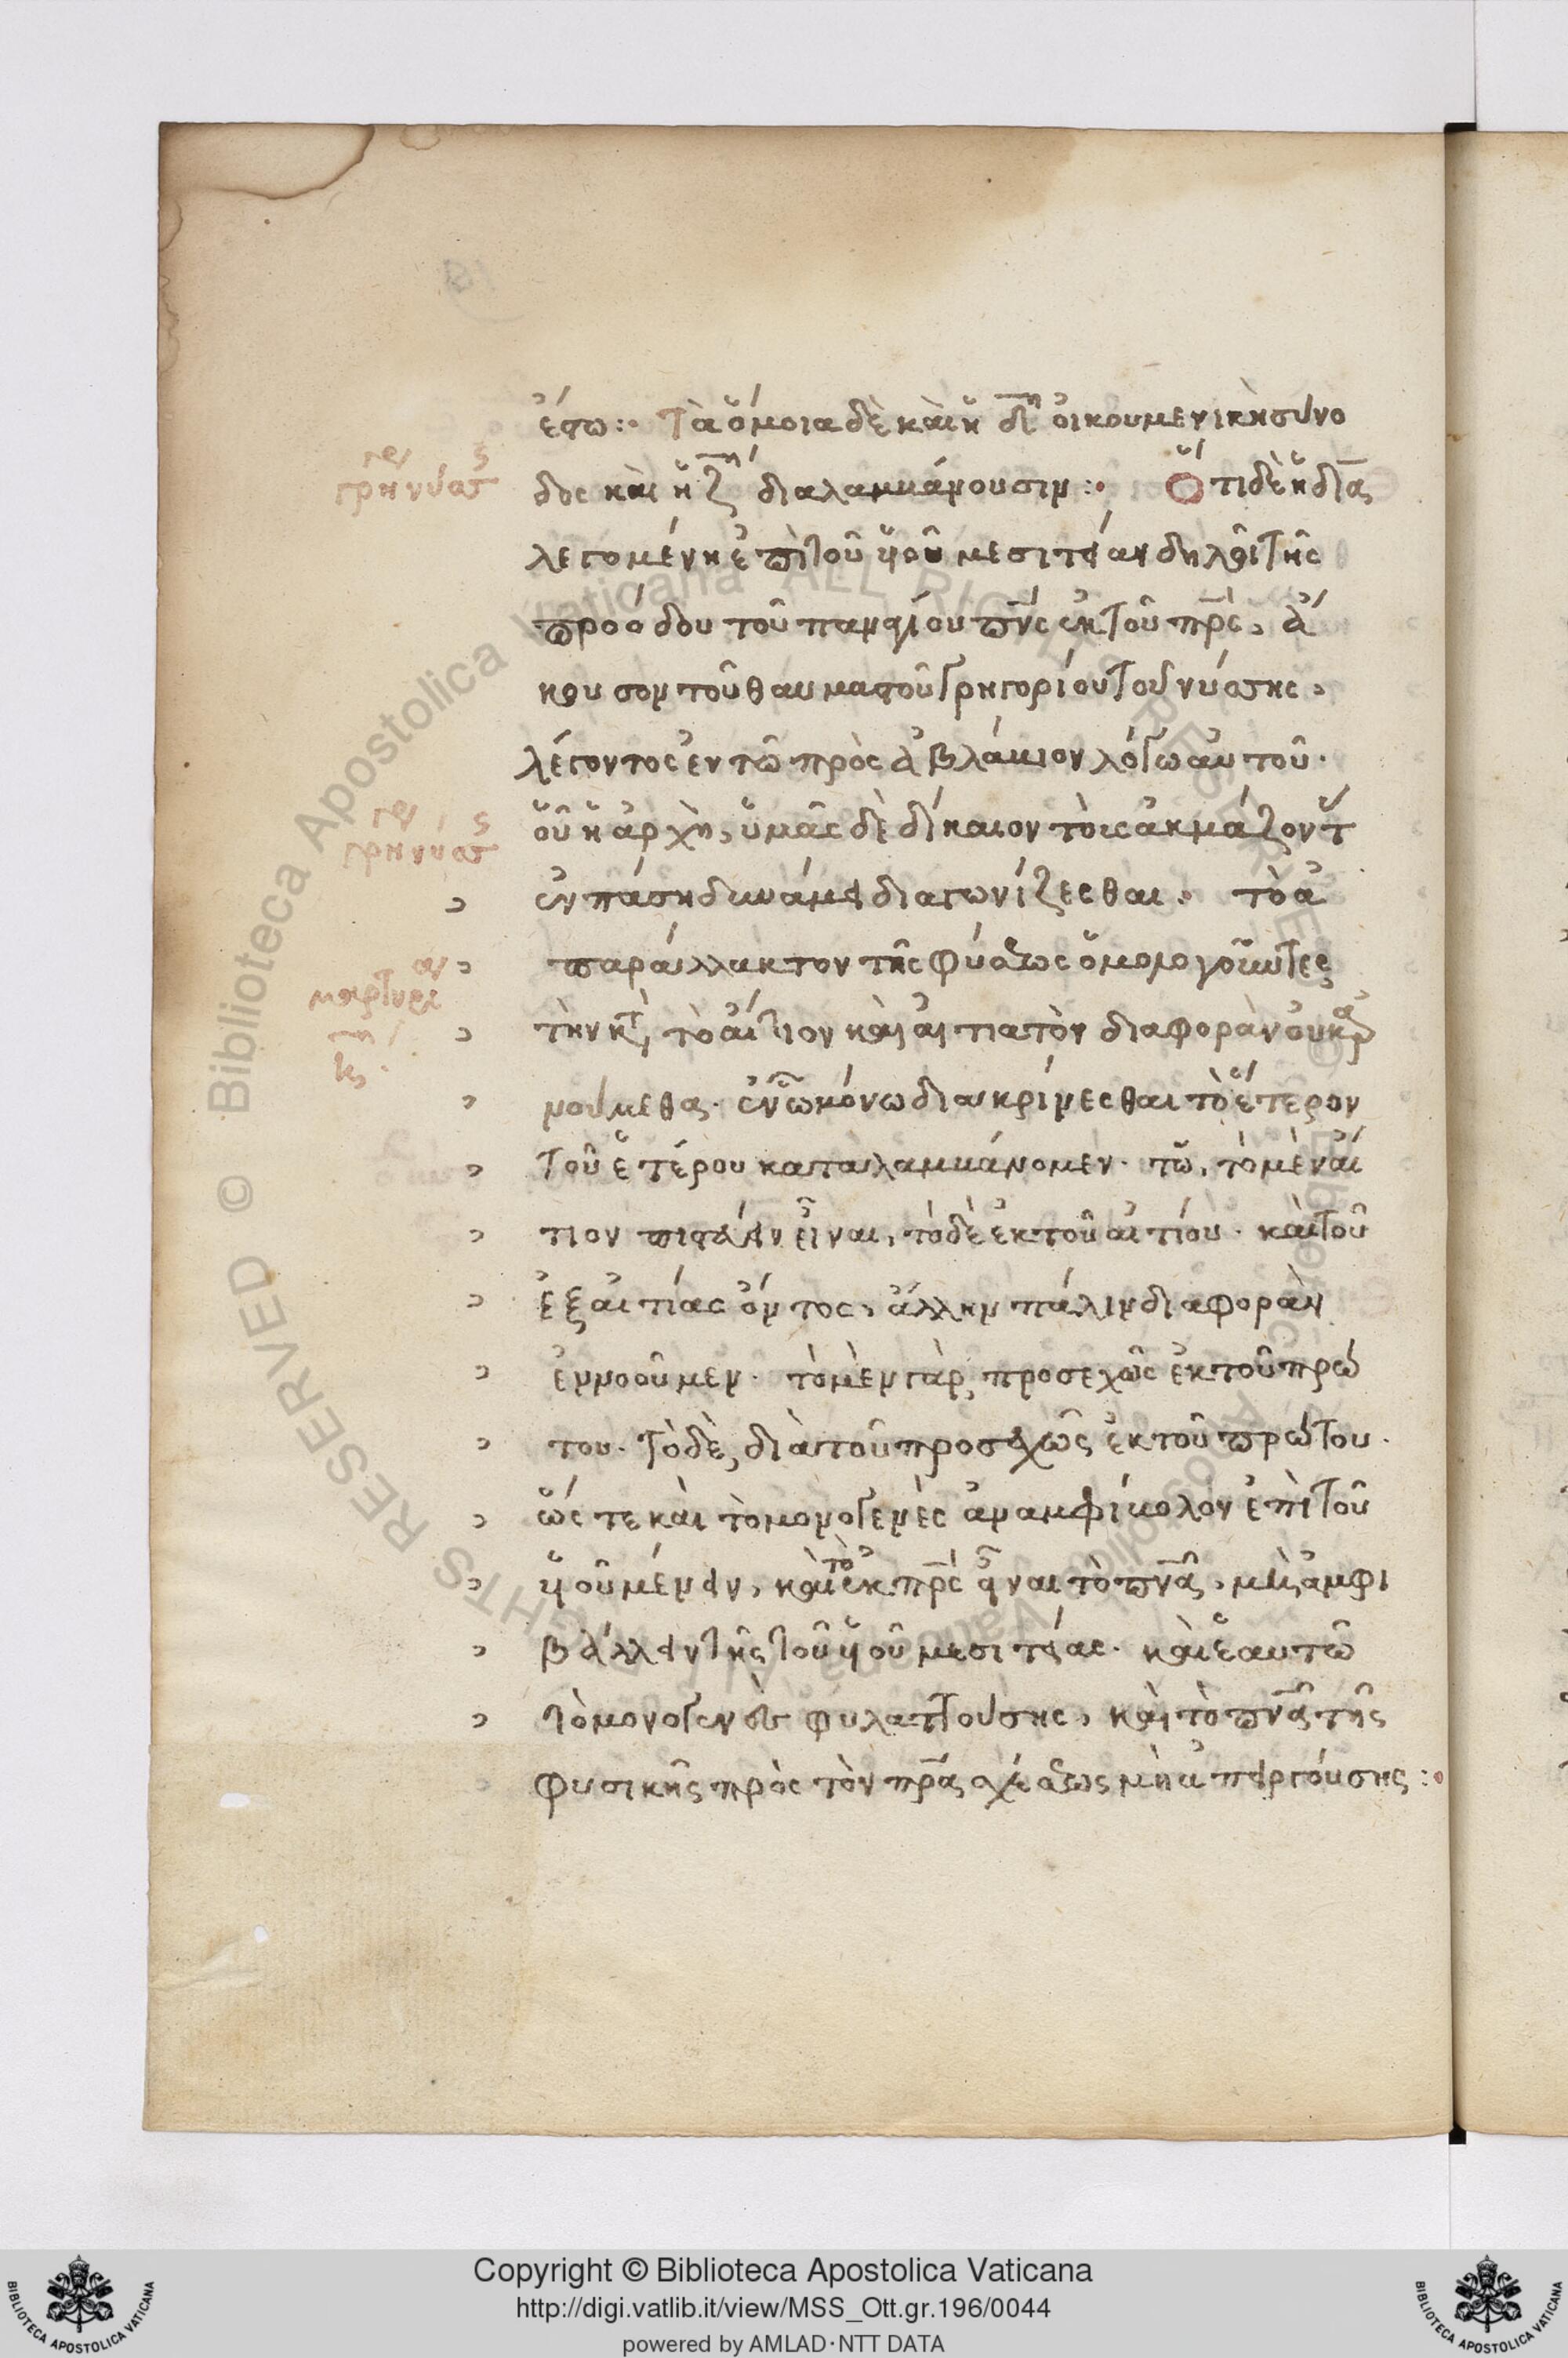 ἔστω :· Τὰ ὅμοια δὲ καὶ ἡ δ̅ῃ οἰκουμενικὴ σύνο
δος καὶ ἡ ζ̅η διαλαμβάνουσιν :· Ὅτι δὲ ἡ διὰ
λεγομένη ἐπὶ τοῦ υἱοῦ μεσιτείαν δηλοῖ τῆς
προόδου τοῦ παναγίου πν̅ς ἐκ τοῦ πρ̅ς, ἄ
κουσον τοῦ θαυμαστοῦ Γρηγορίου τοῦ νύσσης,
λέγοντος ἐν τῷ πρὸς ἀβλάβιον λόγω αὐτοῦ.
οὗ ἡ ἀρχὴ, ὑμᾶς δὲ δίκαιον τοὺς ἀκμάζοντ
ἐν πάση δυνάμει διαγωνίζεσθαι. τὸ ἀ
παράλλακτον τῆς φύσεως ὁμολογοῦντες
τὴν κτ̀ τὸ αἴτιον καὶ αἰτιατὸν διαφορὰν οὐκ ἀρ
νούμεθα. ἐν ᾧ μόνω διακρίνεσθαι τὸ ἕτερον
τοῦ ἑτέρου καταλαμβάνομεν. τῷ, τὸ μὲν αἴ
τιον πιστεύειν εἶναι, τὸ δὲ ἐκ τοῦ αἰτίου. καὶ τοῦ
ἐξ αἰτίας ὄντος, ἄλλην πάλιν διαφορὰν
ἐννοοῦμεν. τὸ μὲν γὰρ, προσεχῶς ἐκ τοῦ πρώ
του. τὸ δὲ, διὰ τοῦ προσεχῶς ἐκ τοῦ πρώτου.
ὥς τε καὶ τὸ μονογενὲς ἀναμφίβολον ἐπὶ τοῦ
υἱοῦ μένειν, καὶ τὸ ἐκ πρ̅ς εἶναι τὸ πν̅α, μὴ ἀμφι
βάλλειν τῆς τοῦ υἱοῦ μεσιτείας. καὶ ἑαυτῷ
τὸ μονογενὲς φυλαττούσης, καὶ τὸ πν̅α τῆς
φυσικῆς πρὸς τὸν πρ̅α σχέσεως μὴ ἀπειργούσης :·
Copyright © Biblioteca Apostolica Vaticana
http://digi.vatlib.it/view/MSS_Ott.gr.196/0044
powered by AMLAD·NTT DATA